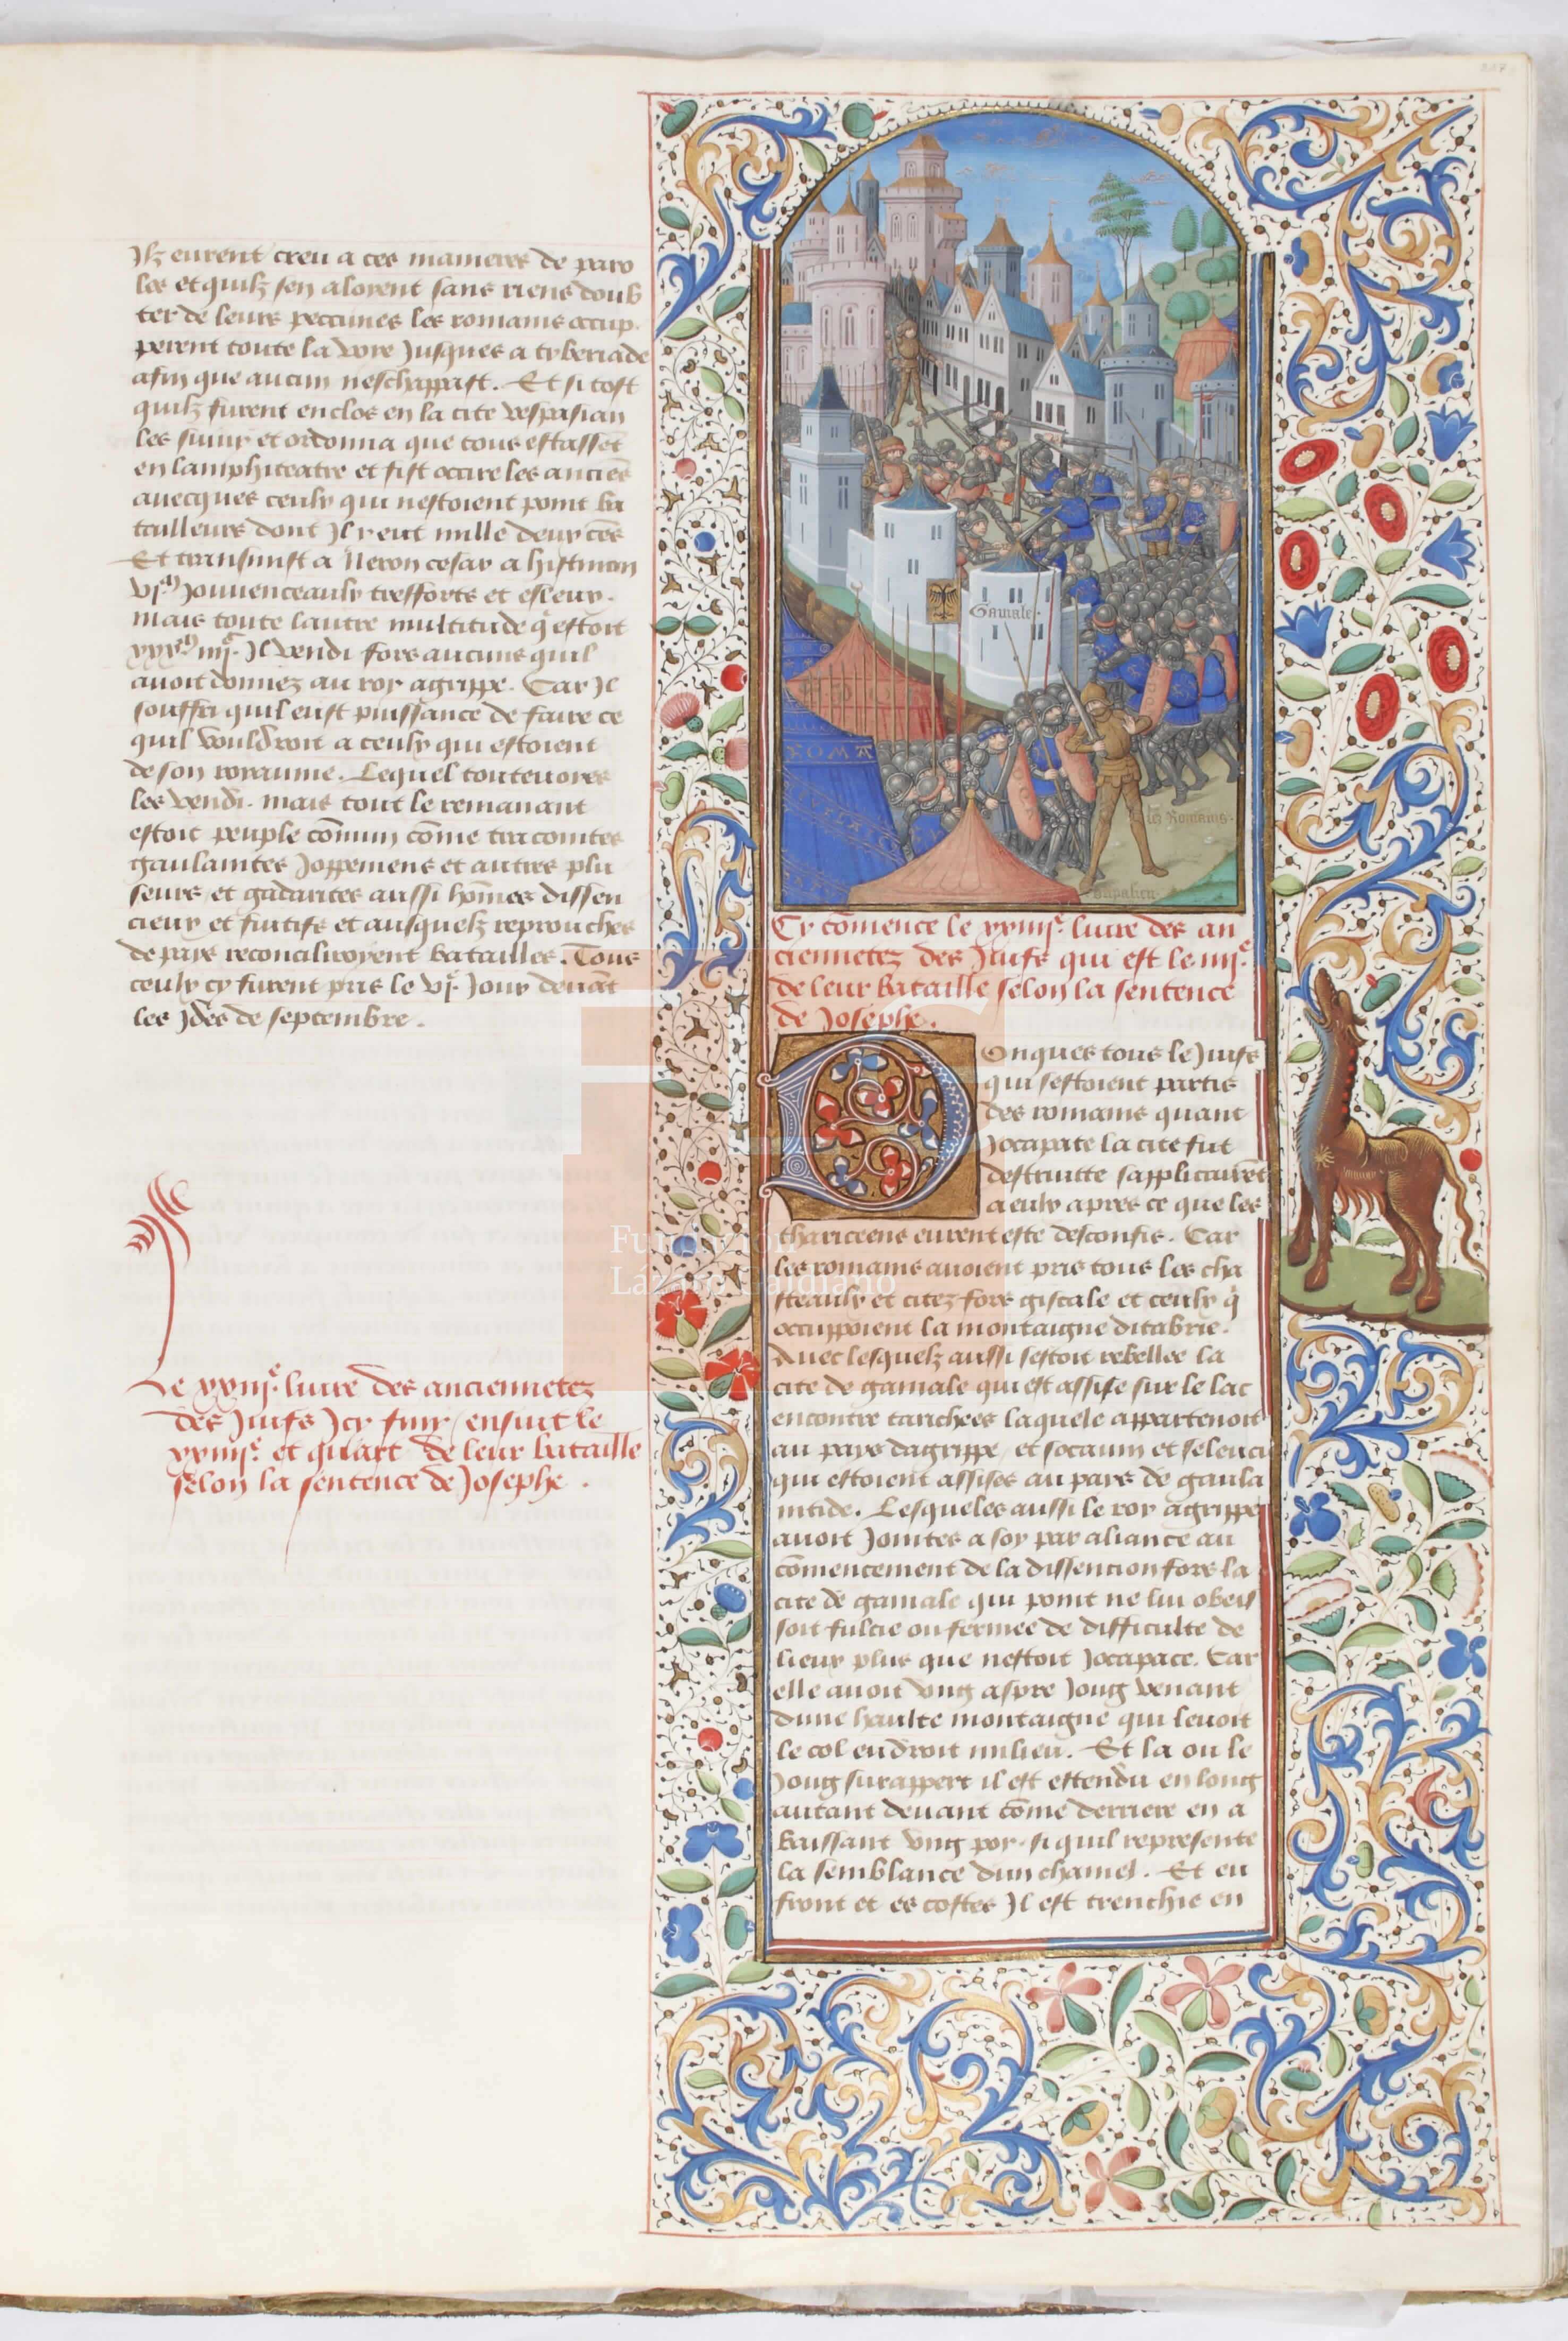 Ilz eurent creu a ces manieres de paro
les et quilz sen aloyent sans riens doub
ter de leurs peccunes les romains occup
perent toute la voye Jusques a tyberiade
afin que aucun neschappast. Et si tost
quilz furent enclos en la cite vespasian
les suiuy et ordonna que tous estasset
en lamphiteatre et fist occire les anciẽs
auecques ceulx qui nestoient point ba
tailleurs dont Il y eut mille deux cẽs
Et transmist a Neron cesar a histmon
vi.ᵐ Jouuenceaulx tresfors et esleux.
mais toute lautre multitude q̃ estoit
xxx.ᵐ iiijᶜ. Il vendi fors aucuns quil
auoit donnez au roy agrippe. Car Il
souffri quil eust puissance de faire ce
quil vouldroit a ceulx qui estoient
de son royaume. Lequel touteuoies
les vendi. mais tout le remanant
estoit peuple cõmun cõme traconites
gaulanites Joppeniens et autres plu
seurs et gadarites aussi hõmes dissen
cieux et fuitifs et ausquelz reprouches
de paix reconcilioyent batailles. Tous
ceulx cy furent pris le vi.ᵉ Jour deuãt
les Jdes de septembre.
Le xxiijᵉ. liure des anciennetez
des Juifs Icy finy ensuit le
xxiiijᵉ. et quart de leur bataille
selon la sentence de Josephe.
Gamale.
ROMA
les Romains.
Cy cõmence le xxiiijᵉ. liure des an
ciennetez des Juifs qui est le iiijᵉ.
de leur bataille selon la sentence
de Josephe.
Donques tous le Juifs
qui sestoient partis
des romains quant
Jocapate la cite fut
destruitte sapplicairẽt
a eulx apres ce que les
thariceens eurent este desconfis. Car
les romains auoient pris tous les cha
steaulx et citez fors giscale et ceulx q̃
occuppoient la montaigne ditabrie.
Auec lesquelz aussi sestoit rebellee la
cite de gamale qui est assise sur le lac
encontre tarichees laquele appartenoit
au pays dagrippe et socaum et seleuci
qui estoient assises au pais de gaula
nitide. Lesqueles aussi le roy agrippe
auoit Jointes a soy par aliance au
cõmencement de la dissencion fors la
cite de gamale qui point ne lui obeis
soit fulcie ou fermee de difficulte de
lieux plus que nestoit Jocapace. Car
elle auoit vng aspre Joug venant
dune haulte montaigne qui leuoit
le col endroit milieu. Et la ou le
Joug surappert il est estendu en long
autant deuant cõme derriere en a
baissant vng poy. si quil represente
la semblance dun chamel. Et en
front et es costes Il est trenchie en
Fundación
Lázaro Galdiano